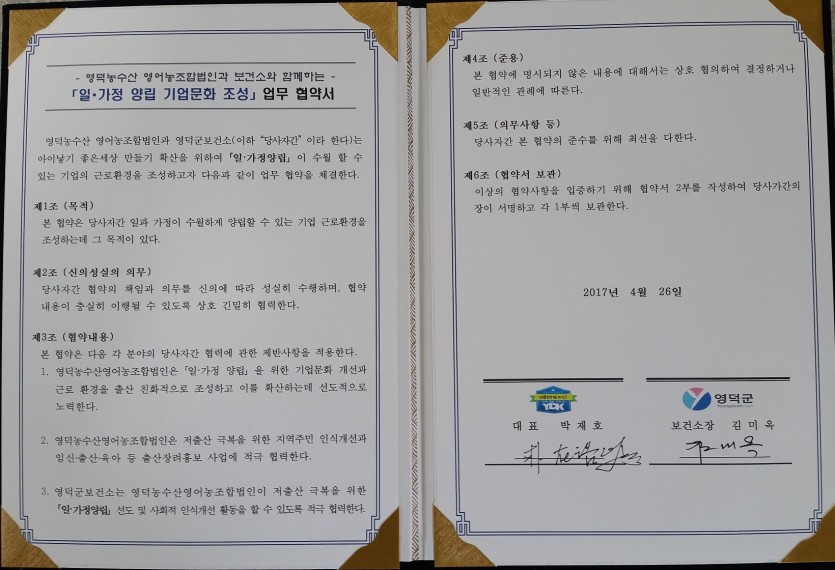 - 영덕농수산 영어농조합법인과 보건소와 함께하는 -
「일·가정 양립 기업문화 조성」 업무 협약서
영덕농수산 영어농조합법인과 영덕군보건소(이하 "당사자간" 이라 한다)는
아이낳기 좋은세상 만들기 확산을 위하여 「일·가정양립」이 수월 할 수
있는 기업의 근로환경을 조성하고자 다음과 같이 업무 협약을 체결한다.
제1조 (목적)
본 협약은 당사자간 일과 가정이 수월하게 양립할 수 있는 기업 근로환경을
조성하는데 그 목적이 있다.
제2조 (신의성실의 의무)
당사자간 협약의 책임과 의무를 신의에 따라 성실히 수행하며, 협약
내용이 충실히 이행될 수 있도록 상호 긴밀히 협력한다.
제3조 (협약내용)
본 협약은 다음 각 분야의 당사자간 협력에 관한 제반사항을 적용한다.
1. 영덕농수산영어농조합법인은 「일·가정 양립」을 위한 기업문화 개선과
근로 환경을 출산 친화적으로 조성하고 이를 확산하는데 선도적으로
노력한다.
2. 영덕농수산영어농조합법인은 저출산 극복을 위한 지역주민 인식개선과
임신·출산·육아 등 출산장려홍보 사업에 적극 협력한다.
3. 영덕군보건소는 영덕농수산영어농조합법인이 저출산 극복을 위한
「일·가정양립」 선도 및 사회적 인식개선 활동을 할 수 있도록 적극 협력한다.
제4조 (준용)
본 협약에 명시되지 않은 내용에 대해서는 상호 협의하여 결정하거나
일반적인 관례에 따른다.
제5조 (의무사항 등)
당사자간 본 협약의 준수를 위해 최선을 다한다.
제6조 (협약서 보관)
이상의 협약사항을 입증하기 위해 협약서 2부를 작성하여 당사가간의
장이 서명하고 각 1부씩 보관한다.
2017년 4월 26일
YDK
대표 박재호
영덕군
보건소장 김미옥